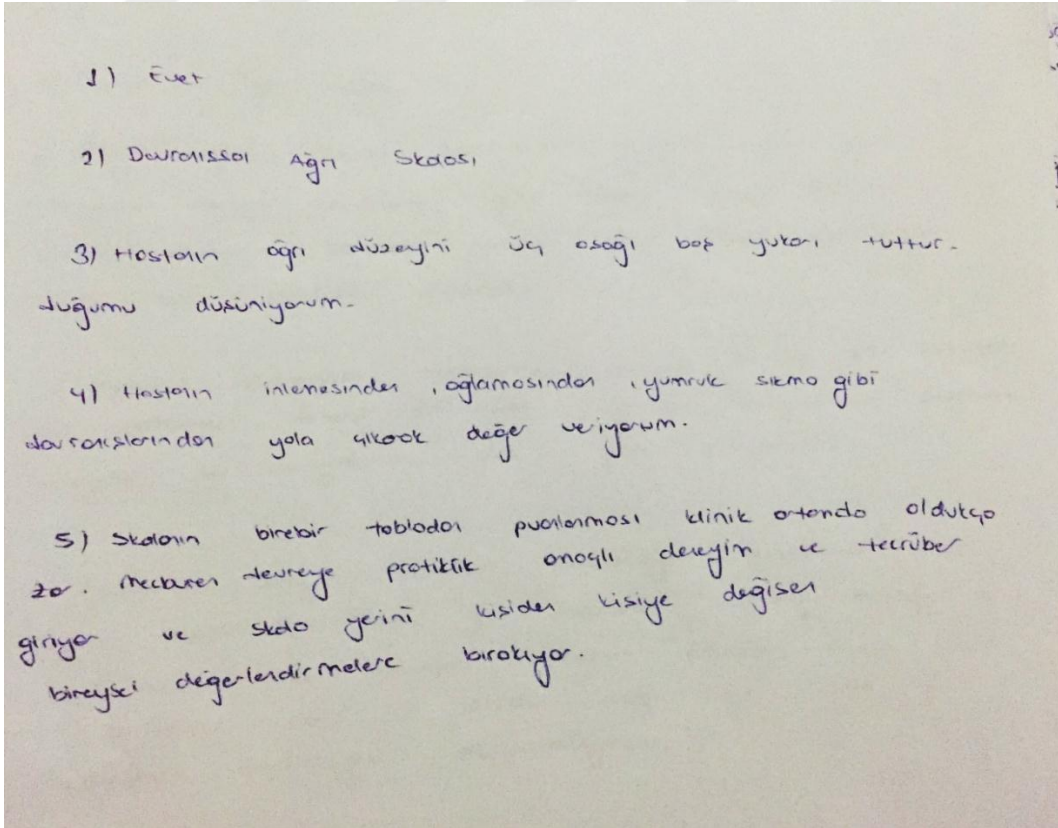 1) Evet
2) Davranışsal Ağrı Skalası
3) Hastanın ağrı düzeyini üç aşağı beş yukarı tuttur-
duğumu düşünüyorum.
4) Hastanın inlemesinden, ağlamasından, yumruk sıkma gibi
davranışlarından yola çıkarak değer veriyorum.
5) Skalanın birebir tablodan puanlanması klinik ortamda oldukça
zor. Mecburen devreye pratiklik amaçlı deneyim ve tecrübe
giriyor ve skala yerini kişiden kişiye değişen
bireysel değerlendirmelere bırakıyor.